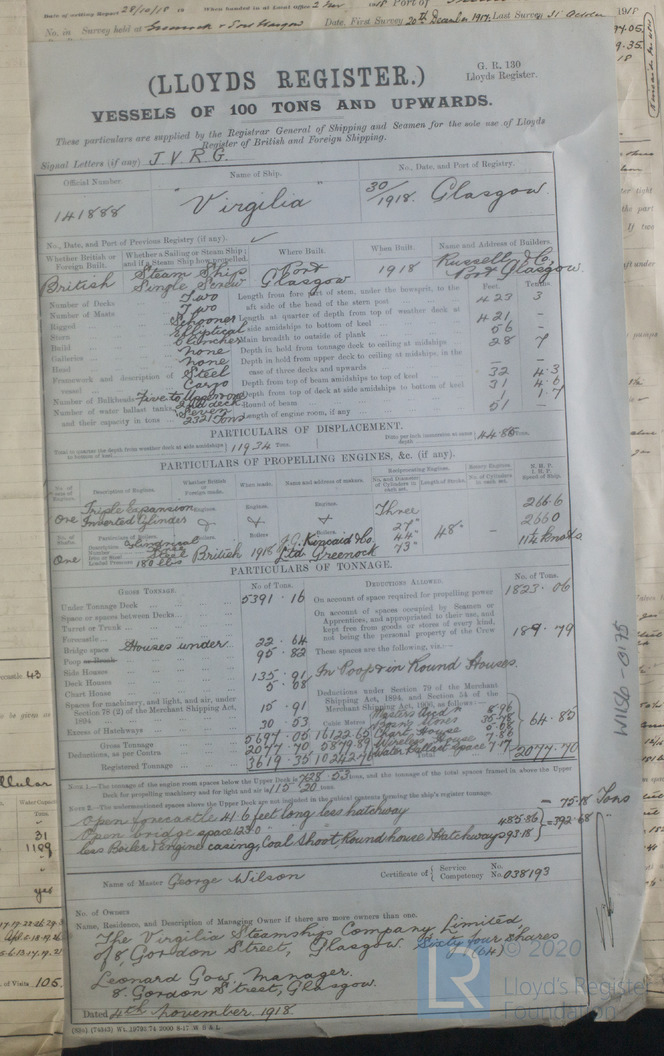 Date of writing Report 28/10/18
When handed in at Local Office 2 Nov 1918 Port of
No. in Survey held at Greenock & Port Glasgow Date, First Survey 20th December 1917 Last Survey 31 October 1918
G. R. 130
Lloyds Register.
(LLOYDS REGISTER.)
VESSELS OF 100 TONS AND UPWARDS.
These particulars are supplied by the Registrar General of Shipping and Seamen for the sole use of Lloyds
Register of British and Foreign Shipping.
Signal Letters (if any) J. V. R. G.
Official Number. Name of Ship. No., Date, and Port of Registry.
141888 "Virgilia" 30/1918. Glasgow.
No., Date, and Port of Previous Registry (if any).
Whether British or Foreign Built. Whether a Sailing or Steam Ship; and if a Steam Ship how propelled. Where Built. When Built. Name and Address of Builders.
British Steam Ship Single Screw Port Glasgow 1918 Russell & Co. Port Glasgow.
Feet. Tenths
Number of Decks Two Length from fore part of stem, under the bowsprit, to the aft side of the head of the stern post 423 3
Number of Masts Two
Rigged Schooner Length at quarter of depth from top of weather deck at side amidships to bottom of keel 421 -
Stern Elliptical
Build Clincher Main breadth to outside of plank 56 -
Galleries none Depth in hold from tonnage deck to ceiling at midships 28 7
Head none Depth in hold from upper deck to ceiling at midships, in the case of three decks and upwards - -
Framework and description of vessel Steel Cargo Depth from top of beam amidships to top of keel 32 4.3
Number of Bulkheads Five to Upper Depth from top of deck at side amidships to bottom of keel 31 4.6
Number of water ballast tanks, and their capacity in tons Seven 2321 Tons Round of beam 1 1.7
Length of engine room, if any 51 -
PARTICULARS OF DISPLACEMENT.
11934 Tons. 44.85 Tons.
PARTICULARS OF PROPELLING ENGINES, &c. (if any).
Description of Engines. Whether British or Foreign made. When made. Name and address of makers. Reciprocating Engines. No. and Diameter of Cylinders in each set. Length of Stroke. Rotary Engines. No. of Cylinders in each set. N. H. P. I. H. P. Speed of Ship.
One Triple Expansion Inverted Cylinder Three 266.6
27" 2660
Cylindrical Steel 180 lbs
One British 1918 J. G. Kincaid & Co. Ltd. Greenock 44" 73" 48" - 11½ knots
PARTICULARS OF TONNAGE.
GROSS TONNAGE. No of Tons. DEDUCTIONS ALLOWED. No. of Tons.
Under Tonnage Deck 5391.16 On account of space required for propelling power 1823.06
Space or spaces between Decks
Turret or Trunk
Forecastle
On account of spaces occupied by Seamen or Apprentices, and appropriated to their use, and kept free from goods or stores of every kind, not being the personal property of the Crew 189.79
Bridge space Houses under 22.64
Poop or Break 95.82 These spaces are the following, viz.:—
Side Houses In Poop & in Round Houses.
Deck Houses 135.91
Chart House 5.08
Spaces for machinery, and light, and air, under Section 78 (2) of the Merchant Shipping Act, 1894 15.91
Deductions under Section 79 of the Merchant Shipping Act, 1894, and Section 54 of the Merchant Shipping Act, 1906, as follows:—
Excess of Hatchways 30.53 Cubic Metres Masters accdn 8.96
Gross Tonnage 5697.05 16122.65 Chart House
Deductions, as per Contra 2077.70 5879.89 Wireless House 7.86 64.85
Registered Tonnage 3619.35 10242.76 Water ballast space 7.7 Total 2077.70
NOTE 1.—The tonnage of the engine room spaces below the Upper Deck is 728.53 tons, and the tonnage of the total spaces framed in above the Upper
Deck for propelling machinery and for light and air is 115.20 tons.
NOTE 2.—The undermentioned spaces above the Upper Deck are not included in the cubical contents forming the ship's register tonnage.
Open forecastle 41.6 feet long less hatchway = 75.18 Tons
Open bridge space 123.0 " " 485.86
less Boiler & Engine casing, Coal Shoot, Round house & Hatchways 93.18 } = 392.68
Name of Master George Wilson Certificate of { Service Competency No. No. 038193
No. of Owners
Name, Residence, and Description of Managing Owner if there are more owners than one.
The Virgilia Steamship Company Limited
of 8, Gordon Street, Glasgow. Sixty four shares (64)
Leonard Gow, Manager.
8, Gordon Street, Glasgow.
Dated 4th November 1918.
(8301) (74343) Wt. 19791.74 2000 8-17 W B & L
W1145-0175
© 2020
LR
Lloyd's Register
Foundation